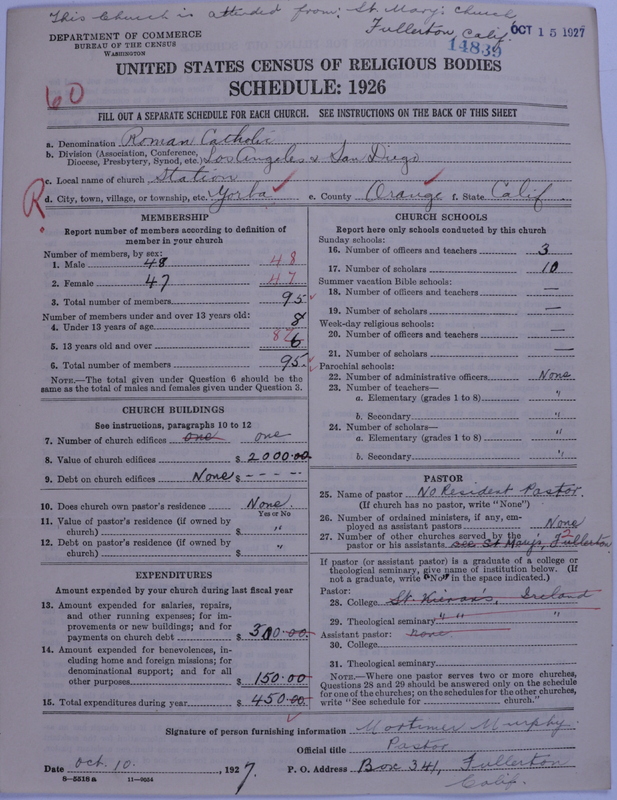 This Church is attended from: St. Mary's Church
Fullerton, Calif.
OCT 15 1927
14839
DEPARTMENT OF COMMERCE
BUREAU OF THE CENSUS
WASHINGTON
UNITED STATES CENSUS OF RELIGIOUS BODIES
SCHEDULE: 1926
60
FILL OUT A SEPARATE SCHEDULE FOR EACH CHURCH. SEE INSTRUCTIONS ON THE BACK OF THIS SHEET
a. Denomination Roman Catholic
b. Division (Association, Conference, Diocese, Presbytery, Synod, etc.) Los Angeles & San Diego
c. Local name of church Station
R
d. City, town, village, or township, etc. Yorba e. County Orange f. State Calif.
MEMBERSHIP
Report number of members according to definition of
member in your church
Number of members, by sex:
1. Male 48 48
2. Female 47 47
3. Total number of members 95
Number of members under and over 13 years old:
4. Under 13 years of age 8
5. 13 years old and over 87
6. Total number of members 95
NOTE.—The total given under Question 6 should be the
same as the total of males and females given under Question 3.
CHURCH BUILDINGS
See instructions, paragraphs 10 to 12
7. Number of church edifices one one
8. Value of church edifices $ 2000.00
9. Debt on church edifices None $ - - - -
10. Does church own pastor's residence None.
Yes or No
11. Value of pastor's residence (if owned by
church) $ "
12. Debt on pastor's residence (if owned by
church) $ "
EXPENDITURES
Amount expended by your church during last fiscal year
13. Amount expended for salaries, repairs,
and other running expenses; for im-
provements or new buildings; and for
payments on church debt $ 300.00
14. Amount expended for benevolences, in-
cluding home and foreign missions; for
denominational support; and for all
other purposes $ 150.00
15. Total expenditures during year $ 450.00
CHURCH SCHOOLS
Report here only schools conducted by this church
Sunday schools:
16. Number of officers and teachers 3
17. Number of scholars 10
Summer vacation Bible schools:
18. Number of officers and teachers —
19. Number of scholars —
Week-day religious schools:
20. Number of officers and teachers —
21. Number of scholars —
Parochial schools:
22. Number of administrative officers None
23. Number of teachers—
a. Elementary (grades 1 to 8) "
b. Secondary "
24. Number of scholars—
a. Elementary (grades 1 to 8) "
b. Secondary "
PASTOR
25. Name of pastor No Resident Pastor
(If church has no pastor, write "None")
26. Number of ordained ministers, if any, em-
ployed as assistant pastors None
27. Number of other churches served by the 2
pastor or his assistants see St Mary's, Fullerton
If pastor (or assistant pastor) is a graduate of a college or
theological seminary, give name of institution below. (If
not a graduate, write "No" in the space indicated.)
Pastor:
28. College St. Kieran's, Ireland
29. Theological seminary " " "
Assistant pastor: none
30. College
31. Theological seminary
NOTE.—Where one pastor serves two or more churches,
Questions 28 and 29 should be answered only on the schedule
for one of the churches; on the schedules for the other churches,
write "See schedule for church."
Signature of person furnishing information Mortimer Murphy.
Official title Pastor
Date Oct. 10. , 1927. P. O. Address Box 341, Fullerton
Calif.
8—5518 a 11—9554